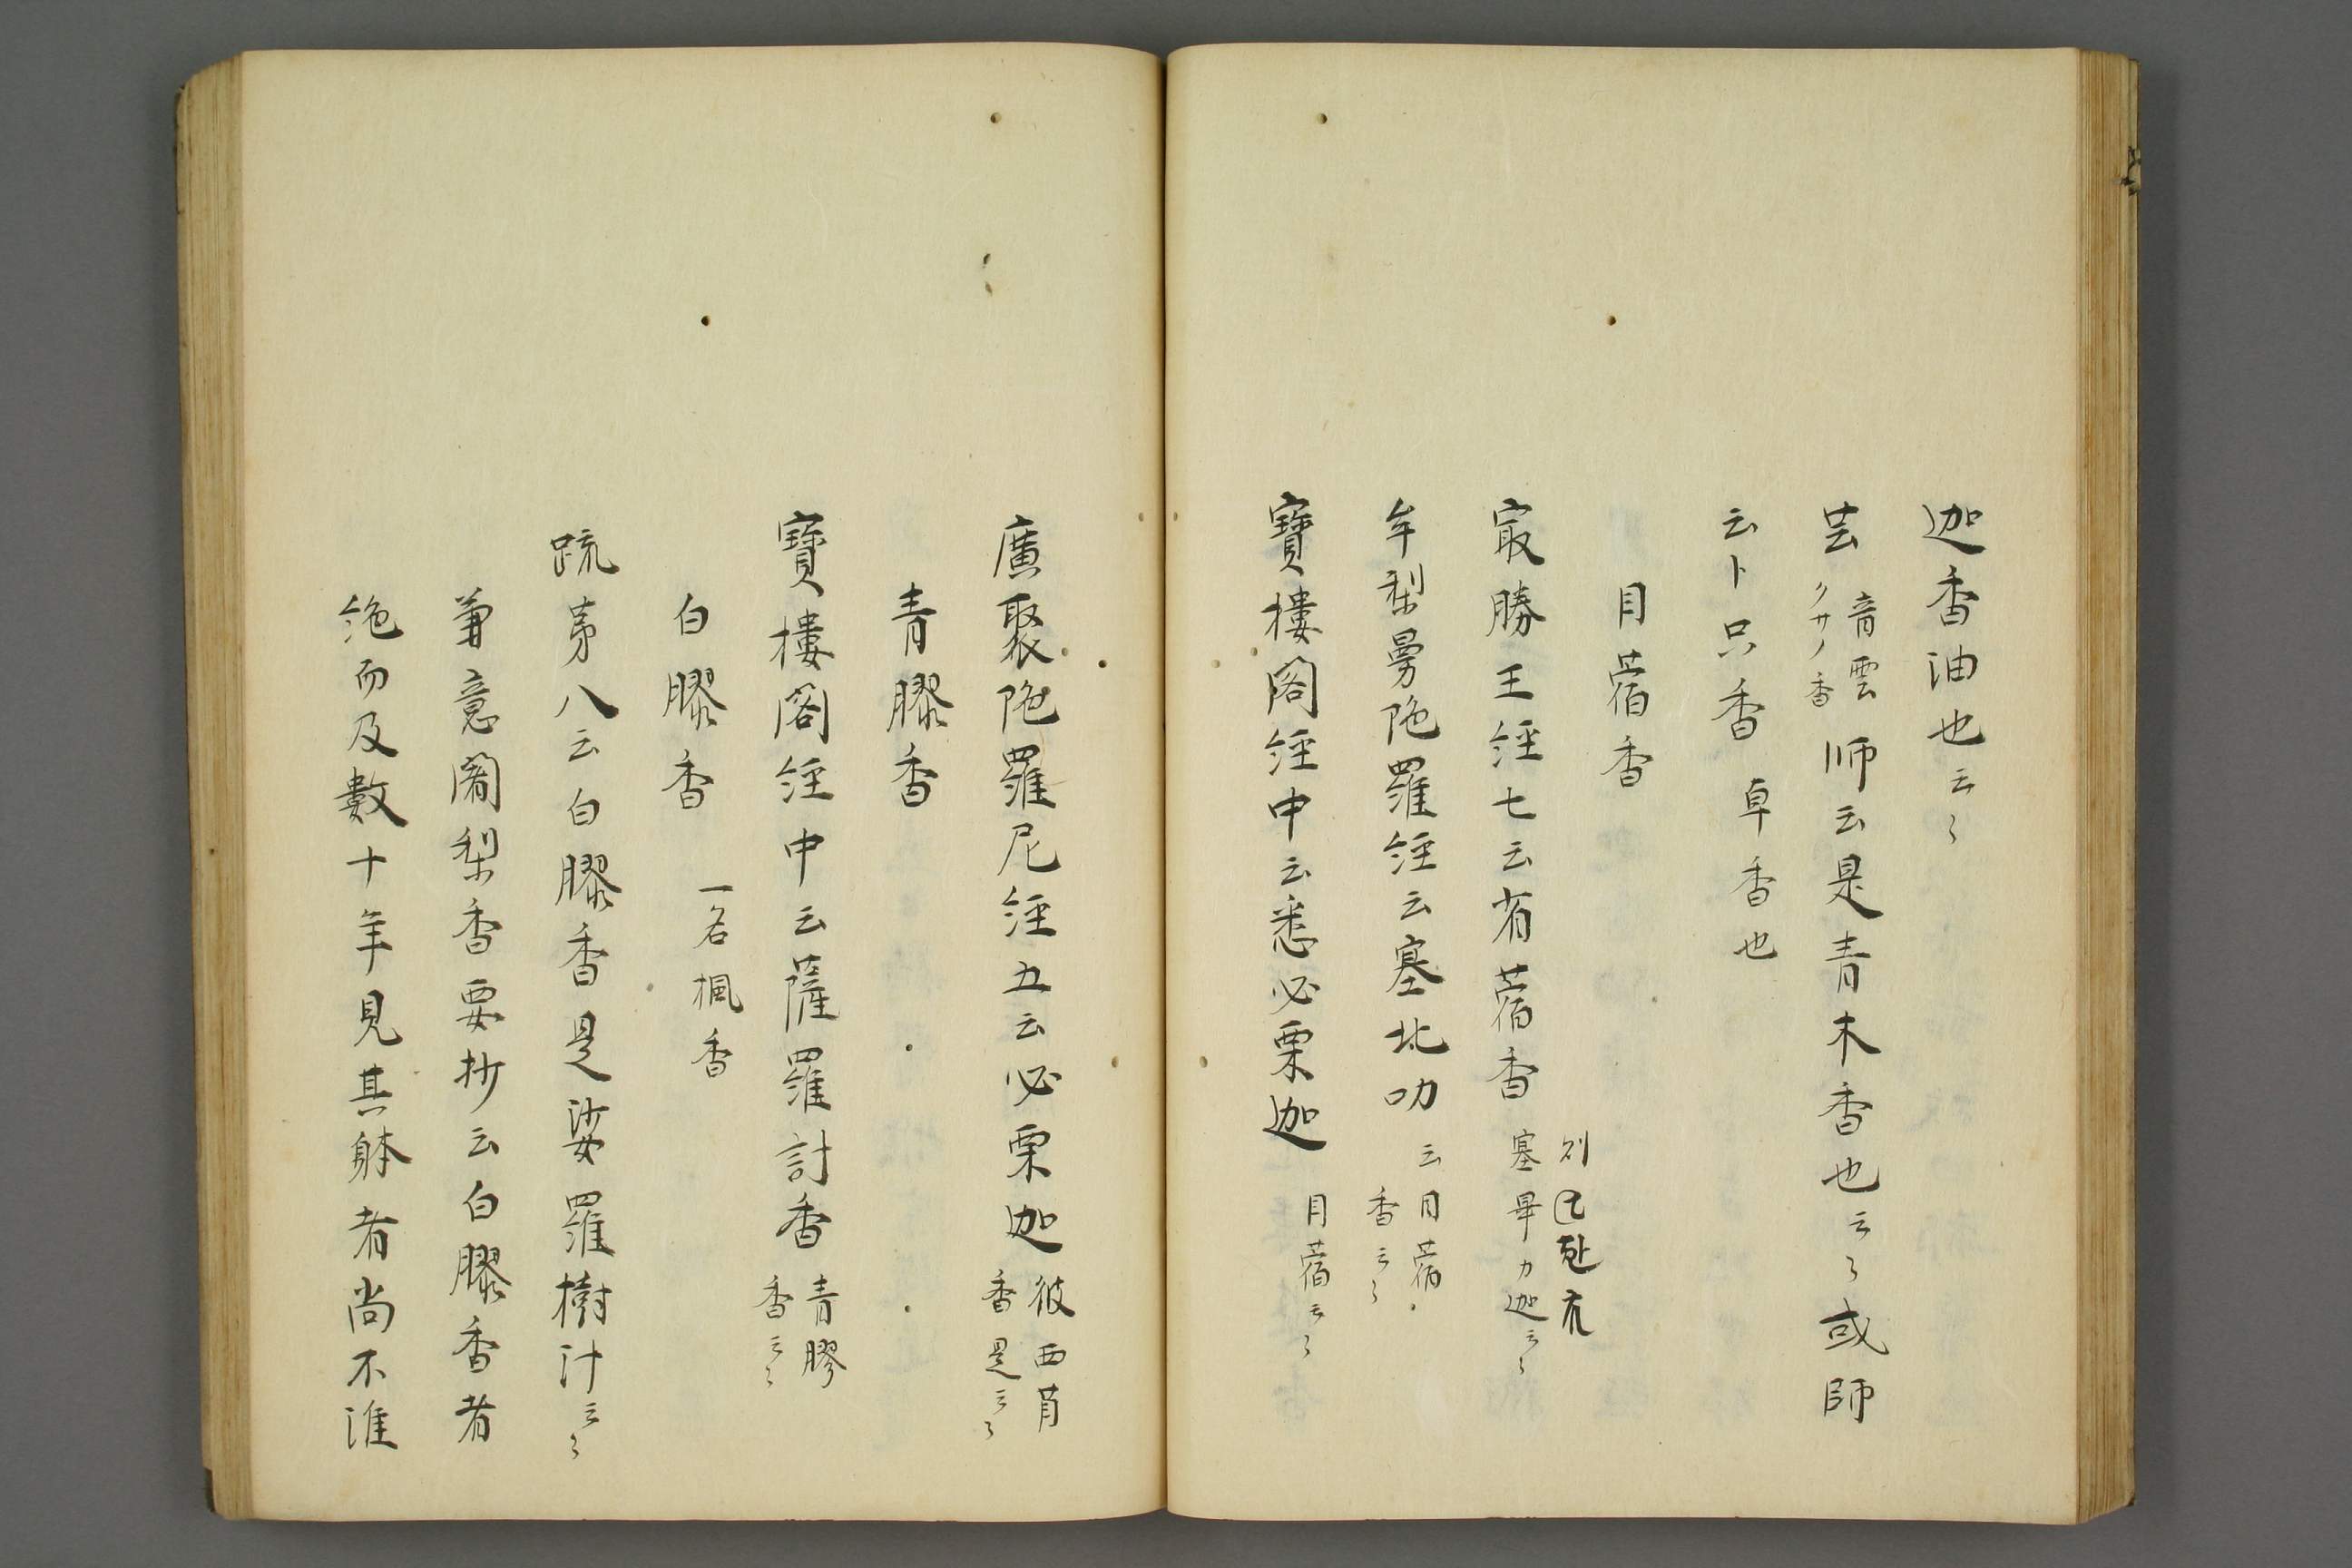 迦香油也云〻
芸 音雲 クサノ香 师云是青木香也云〻或師
云卜只香 草香也
目蓿香
㝡勝王経七云省蓿香 塞畢力迦云〻
牟梨曼陁羅経云塞北叻 云目蓿香云〻
寶樓閣経中云悉必栗迦 目蓿云〻
廣聚陁羅尼経五云必栗迦 彼西香是云〻
青膠香
寶樓閣経中云薩羅計香 青膠香云〻
白膠香 一名楓香
疏第八云白膠香是娑羅樹汁云〻
兼意闍梨香要抄云白膠香者
絶而及數十年見其躰者尚不淮